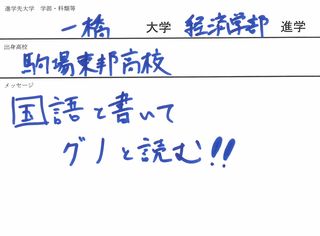 進学先大学 学部・科類等
一橋 大学 経済学部 進学
出身高校
駒場東邦高校
メッセージ
国語と書いて
グノと読む!!